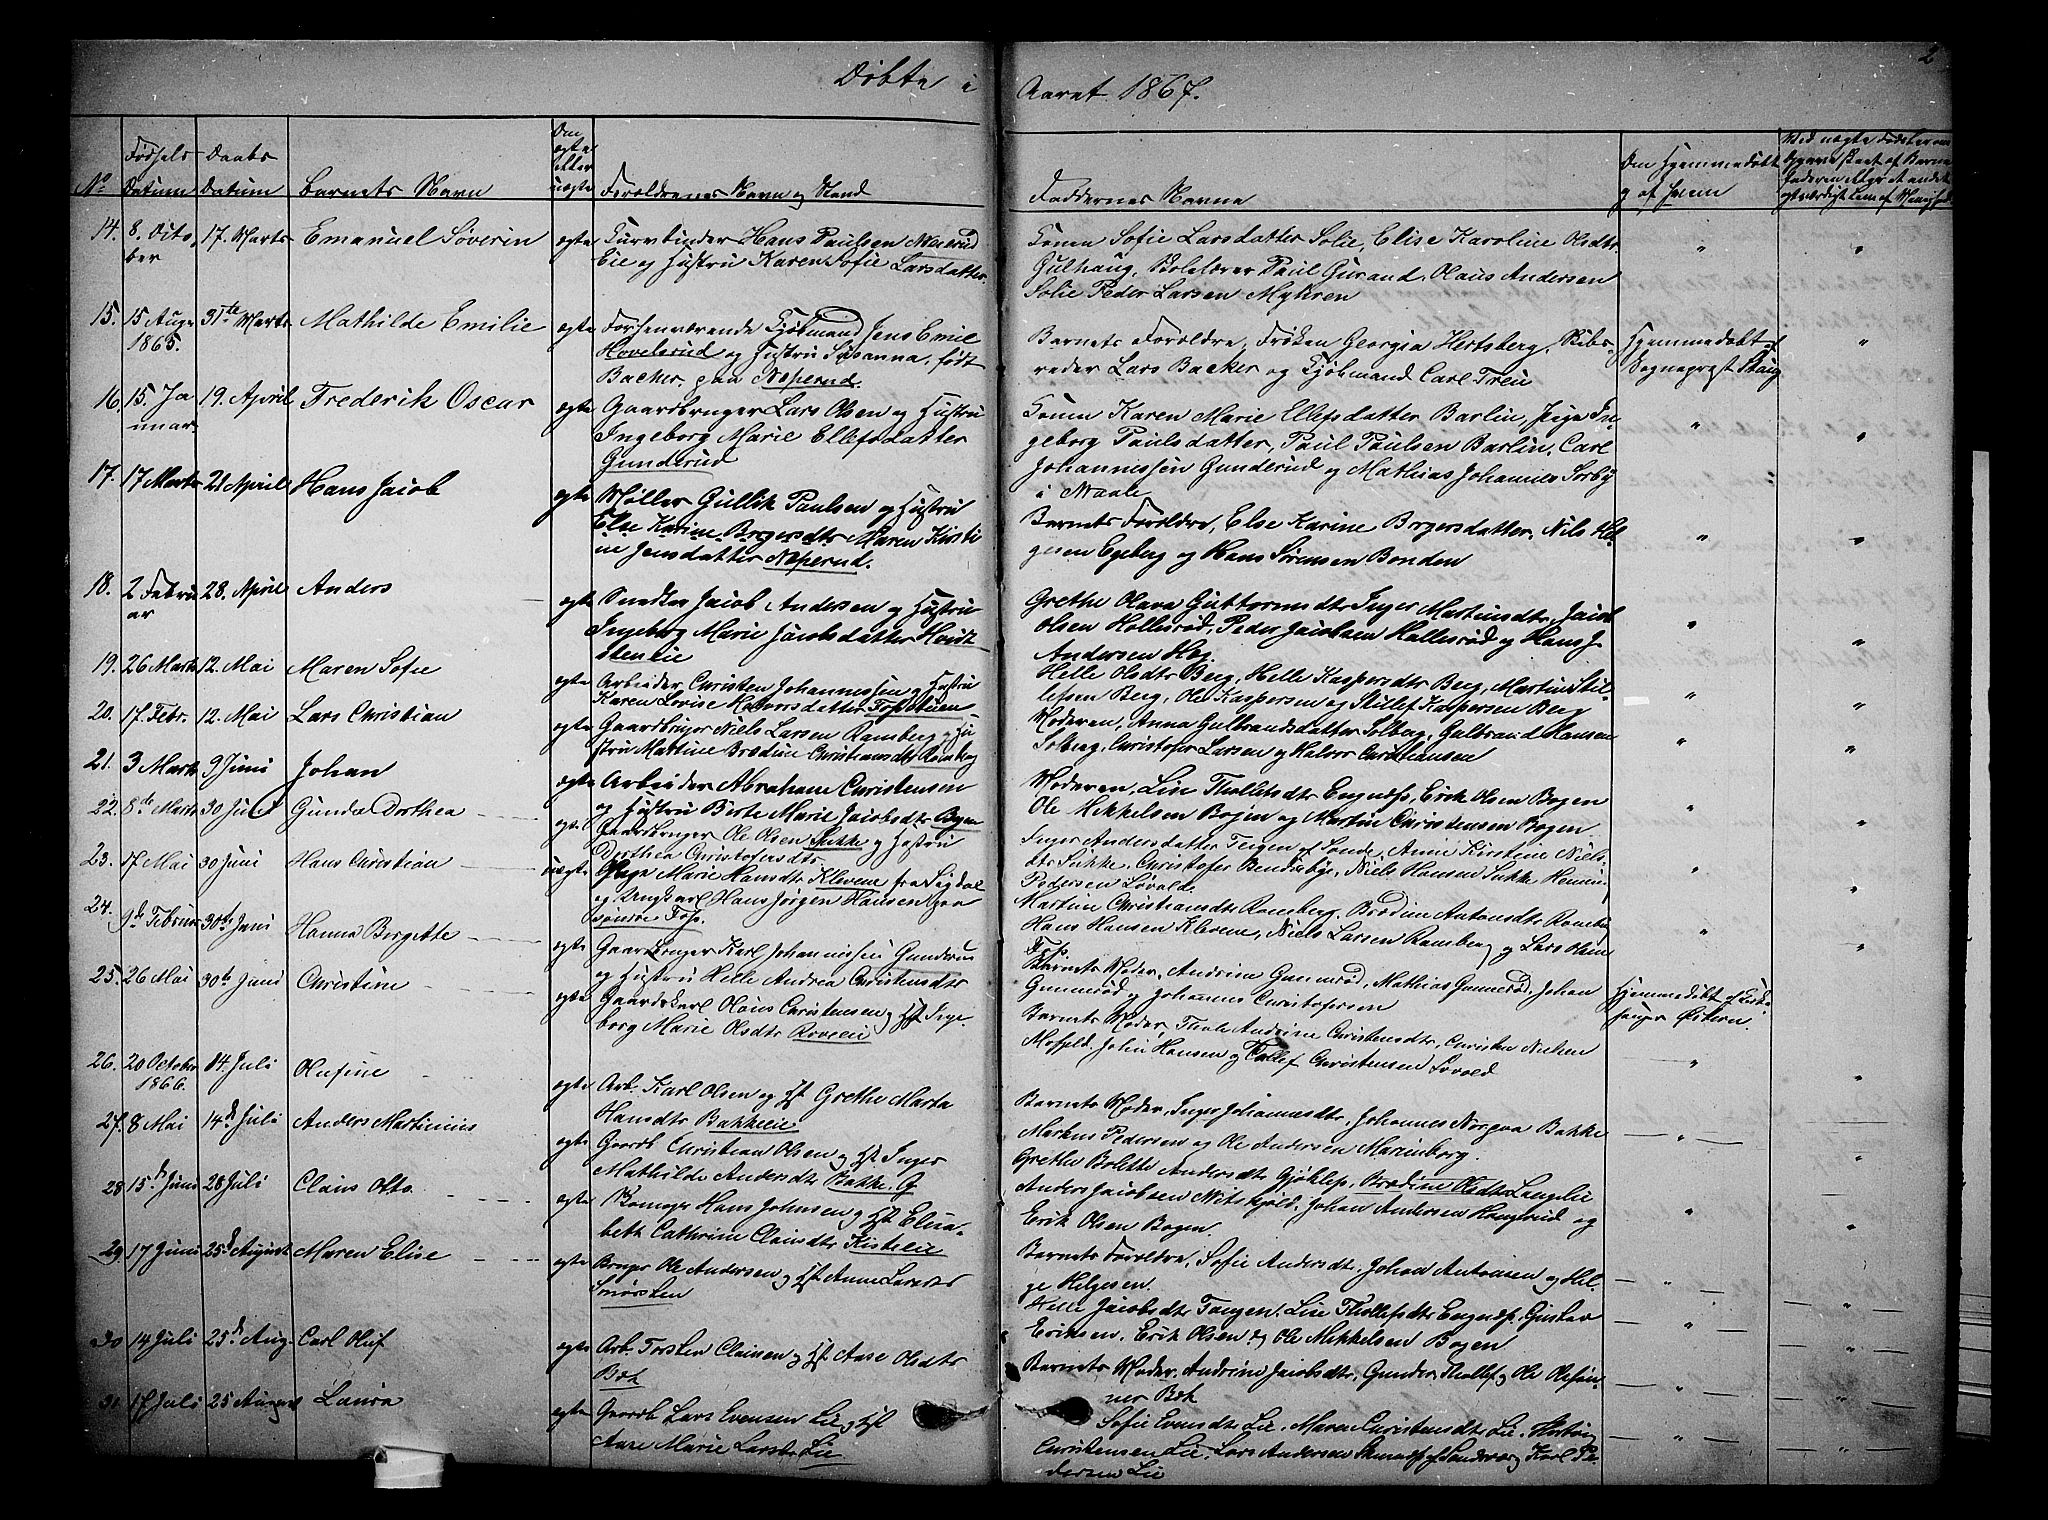 Døbte i Aaret 1867.
2
No
Fødsels Datum
Daabs Datum
Barnets Navn
Om ægte eller uægte
Forældrenes Navn og Stand
Faddernes Navne
Om Hjemmedøbt og af hvem
14. 8. Octo- 17. Marts Emanuel Søverin ægte Kurvbinder Hans Paulsen Narerud
ber Eie og Hustru Karen Sofie Larsdatter.
Konen Sofie Larsdatter Solie, Elise Karoline Olsdtr
Gulhaug, Paul Gurand, Olaus Andersen
Solie Peder Larsen Myhren
15. 15 Aug. 31te Marts Mathilde Emilie ægte Forhenværende Kjøbmand Jens Emil
1865. Hovelsrud og Hustru Susanna, født
Backer, paa Næperud.
Barnets Forældre, Frøken Georgia Hertsberg, Skibs-
reder Lars Backer og Kjøbmand Carl Treu
Hjemmedøbt af
Sogneprest
16. 15. Ja 19. April Frederik Oscar ægte Gaardbruger Lars Olsen og Hustru
nuar Ingeborg Marie Ellefsdatter
Gunderud
Konen Karen Marie Ellefsdatter Barlin, Pige In-
geborg Paulsdatter, Paul Paulsen Barlin, Carl
Johannessen Gunderud og Mathias Johannes Sørby
i Waale
17. 17 Marts 21 April Hans Jacob ægte Møller Gullik Paulsen og Hustru
Else Karine Børgersdtr Maren Kirsti
ne Jensdatter Næperud.
Barnets Forældre, Else Karine Børgersdatter, Nils Hel-
gesen Egeberg og Hans Sørensen Bonden
18. 2 Febru 28. April Anders ægte Smeden Jacob Andersen og Hustru
ar Ingeborg Marie Jacobsdatter Hvidt-
stenlie
Grethe Olava Guttormsdtr Inger Martinsdtr, Jacob
Olsen Hallesrød, Peder Jacobsen Hallesrød og Hans J.
Andersen Høg.
19. 26 Marts 12. Mai Maren Sofie ægte Arbeider Christen Johannessen og Hustru
Karen Lovise Halvorsdatter Fosstuen
Helle Olsdtr Berg, Helle Kaspersdtr Berg, Martin Stil-
lefsen Berg, Ole Kaspersen og Stillef Kaspersen Berg
20. 17. Febr. 12. Mai Lars Christian ægte Gaardbruger Niels Larsen Ramberg og Hu
stru Martine Brædine Christiansdtr Ramberg
Moderen, Anna Gulbrandsdatter Solberg, Gulbrand Hansen
Solberg, Christofer Larsen og Halvor Christiansen
21. 3 Marts 9 Juni Johan ægte Arbeider Abraham Christensen
og Hustru Birte Marie Jacobsdtr Bogen
Moderen, Lise Tholfsdtr Engnæs, Erik Olsen Bogen
Ole Mikkelsen Bogen og Martin Christensen Bogen
22. 8de Marts 30 Juni Gunda Dorthea ægte Gaardbruger Ole Olsen Sukke og Hustru
Dorthea Christofersdtr
Inger Andersdatter Teigen af Sande, Anne Kirstine Niels-
dtr Sukke, Christofer Rendseby, Niels Hansen Sukke Henrik
Pedersen Løvald
23. 17 Mai 30 Juni Hans Christian uægte Pige Marie Hansdtr Klevene fra Sigdal
og Ungkarl Hans Jørgen Hansen paa
søndre Fos.
Martine Christiansdtr Ramberg, Brædine Antonsdtr Ramberg
Hans Hansen Klevene, Niels Larsen Ramberg og Lars Olsen
Fos
24. 9de Februar 30te Juni Hanna Bergette ægte Gaardbruger Karl Johannessen Gunderud
og Hustru Helle Andrea Christensdtr
Barnets Moder, Andrine Gunnerød, Mathias Gunnerød, Johan
Gunnerød og Johannes Christofersen
25. 26 Mai 30te Juni Christine ægte Gaardskarl Olaus Christensen og Hst Inge-
borg Marie Olsdtr Roveeie
Barnets Moder, Thala Andrine Christensdtr, Christen Nielsen
Mosfeld, John Hansen og Tollef Christensen Løvald
Hjemmedøbt af Kirke-
sanger Østern.
26. 20 October 14. Juli Olufine ægte Arb. Karl Olsen og Hst Grethe Marta
1866. Hansdtr Bakkeeie
Barnets Moder, Inger Johannesdtr, Johannes Norgaa Bakke
Markus Pedersen og Ole Andersen Marienborg.
27. 8 Mai 14de Juli Anders Martinius ægte Gaardb Christian Olsen og Hst Inger
Mathilde Andersdtr Bakke G
Grethe Bolette Andersdtr Gjøklep, Brædine Olsdtr Langelie
Anders Jacobsen Nitskjold, Johan Andersen Haugerud og
Erik Olsen Bogen.
28 15de Juni 28 Juli Claus Otto ægte Skomager Hans Johnsen og Hst Elisa-
beth Cathrine Clausdtr Kisteeie
Barnets Forældre, Sofie Andersdtr, Johan Antonsen og Hel-
ge Helgesen.
29 17 Juni 25de August Maren Elise ægte Bruger Ole Andersen og Hst Anne Larsdtr
Smørsten
Helle Jacobsdtr Tangen, Lise Tholfsdtr Engnæs, Gustav
Eriksen, Erik Olsen og Ole Mikkelsen Bogen
30 14 Juli 25de Aug. Carl Oluf ægte Arb. Torsten Clausen og Hst Aase Olsdtr
Bøk
Barnets Moder, Andrine Jacobsdtr, Gunder Thollef og Ole Olsøn-
ner Bøk
31 17 Juli 25 August Laura ægte Gaardb Lars Evensen Lie og Hst
Anne Marie Larsdtr Lie
Sofie Evensdtr Lie, Maren Christensdtr Lie, Hartvig
Christensen Lie, Lars Andersen og Karl Pe-
dersen Lie